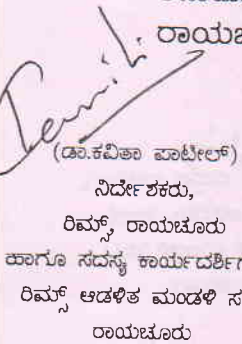 ರಾಯಚ
(ಡಾ.ಕವಿತಾ ಪಾಟೀಲ್)
ನಿರ್ದೇಶಕರು,
ರಿಮ್ಸ್, ರಾಯಚೂರು
ಹಾಗೂ ಸದಸ್ಯ ಕಾರ್ಯದರ್ಶಿಗ
ರಿಮ್ಸ್ ಆಡಳಿತ ಮಂಡಳಿ ಸ
ರಾಯಚೂರು